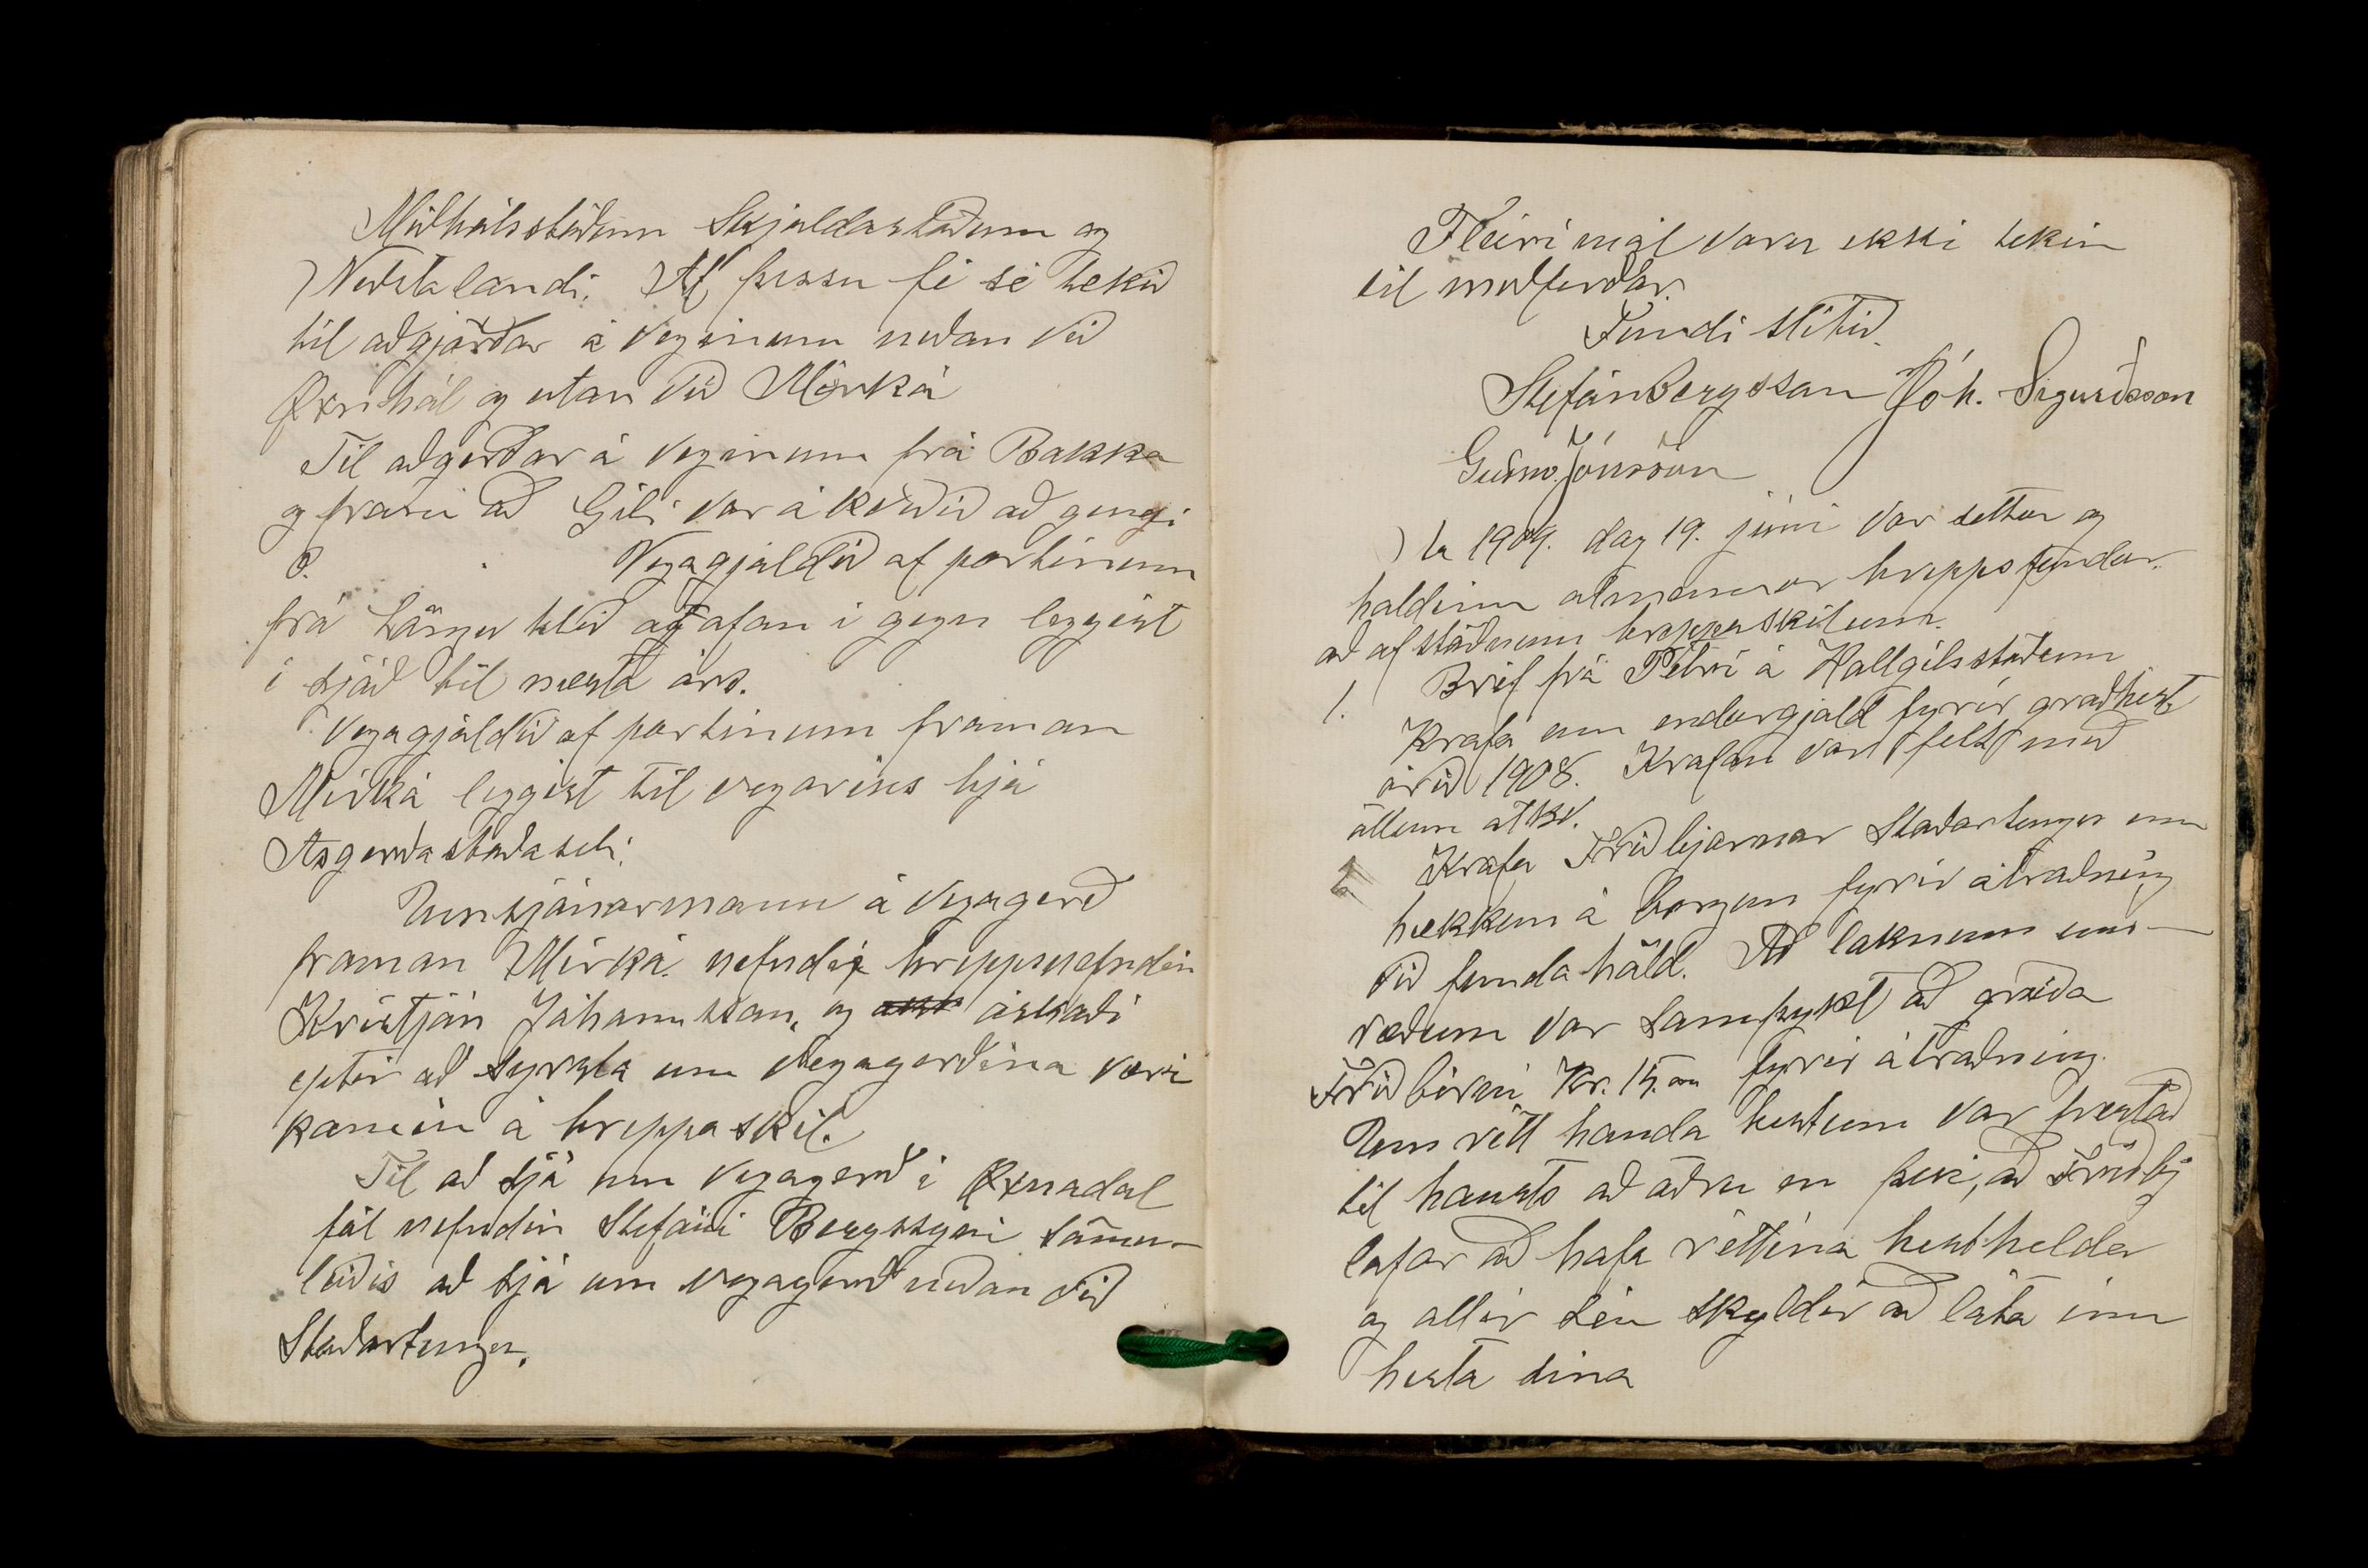 Miðhálsstöðum Skjaldastöðum og
Neðstalandi. Af þessu fé sé tekið
til aðgjörðar á veginum neðan við
Øxnhól og utan við Mörká
Til aðgerðar á veginum frá Bakka
og fram að Gili var ákveðið að gengi
Vegagjaldið af partinum
frá Löngu hlíð og ofan í gegn leggist
í sjóð til næsta árs.
Vegagjaldið af partinum framan
Mirká leggist til vegarins hjá
Asgerðastaðaseli.
Umsjónarmann á vegagerð
framan Mirká nefndi hreppsnefndin
Kristján Jóhannsson, og óskaði
eptir að skyrsla um vegagerðina væri
komin á hreppaskil.
Til að sjá um vegagerð í Øxnadal
fól nefndin Stefáni Bergssyni sömu-
leiðis að sjá um vegagerð neðan við
Staðartungu.
Fleiri mál voru ekki tekin
til meðferðar.
Fundi slitið.
Stefán Bergsson Jóh. Sigurðsson
Guðm. Jónsson
Ár 1909. dag 19. júni var settur og
haldinn almennur hreppsfundur.
að afstöðnum hreppaskilum.
1. Bréf frá Pétri á Hallgilsstöðum
Krafa um endurgjald fyrir graðhest
árið 1908. Krafan var felld með
öllum atkv.
2 Krafa Friðbjarnar Staðartungu um
hækkun á borgun fyrir átroðning
við fundahöld. Að loknum um-
ræðum var samþykt að greiða
Friðbirni Kr. 15.00 fyrir átroðning.
Um rétt handa hestum var frestað
til hausts að öðru en því, að Friðbj
lofar að hafa réttina hesthelda
og allir séu skyldir að láta inn
hesta sína